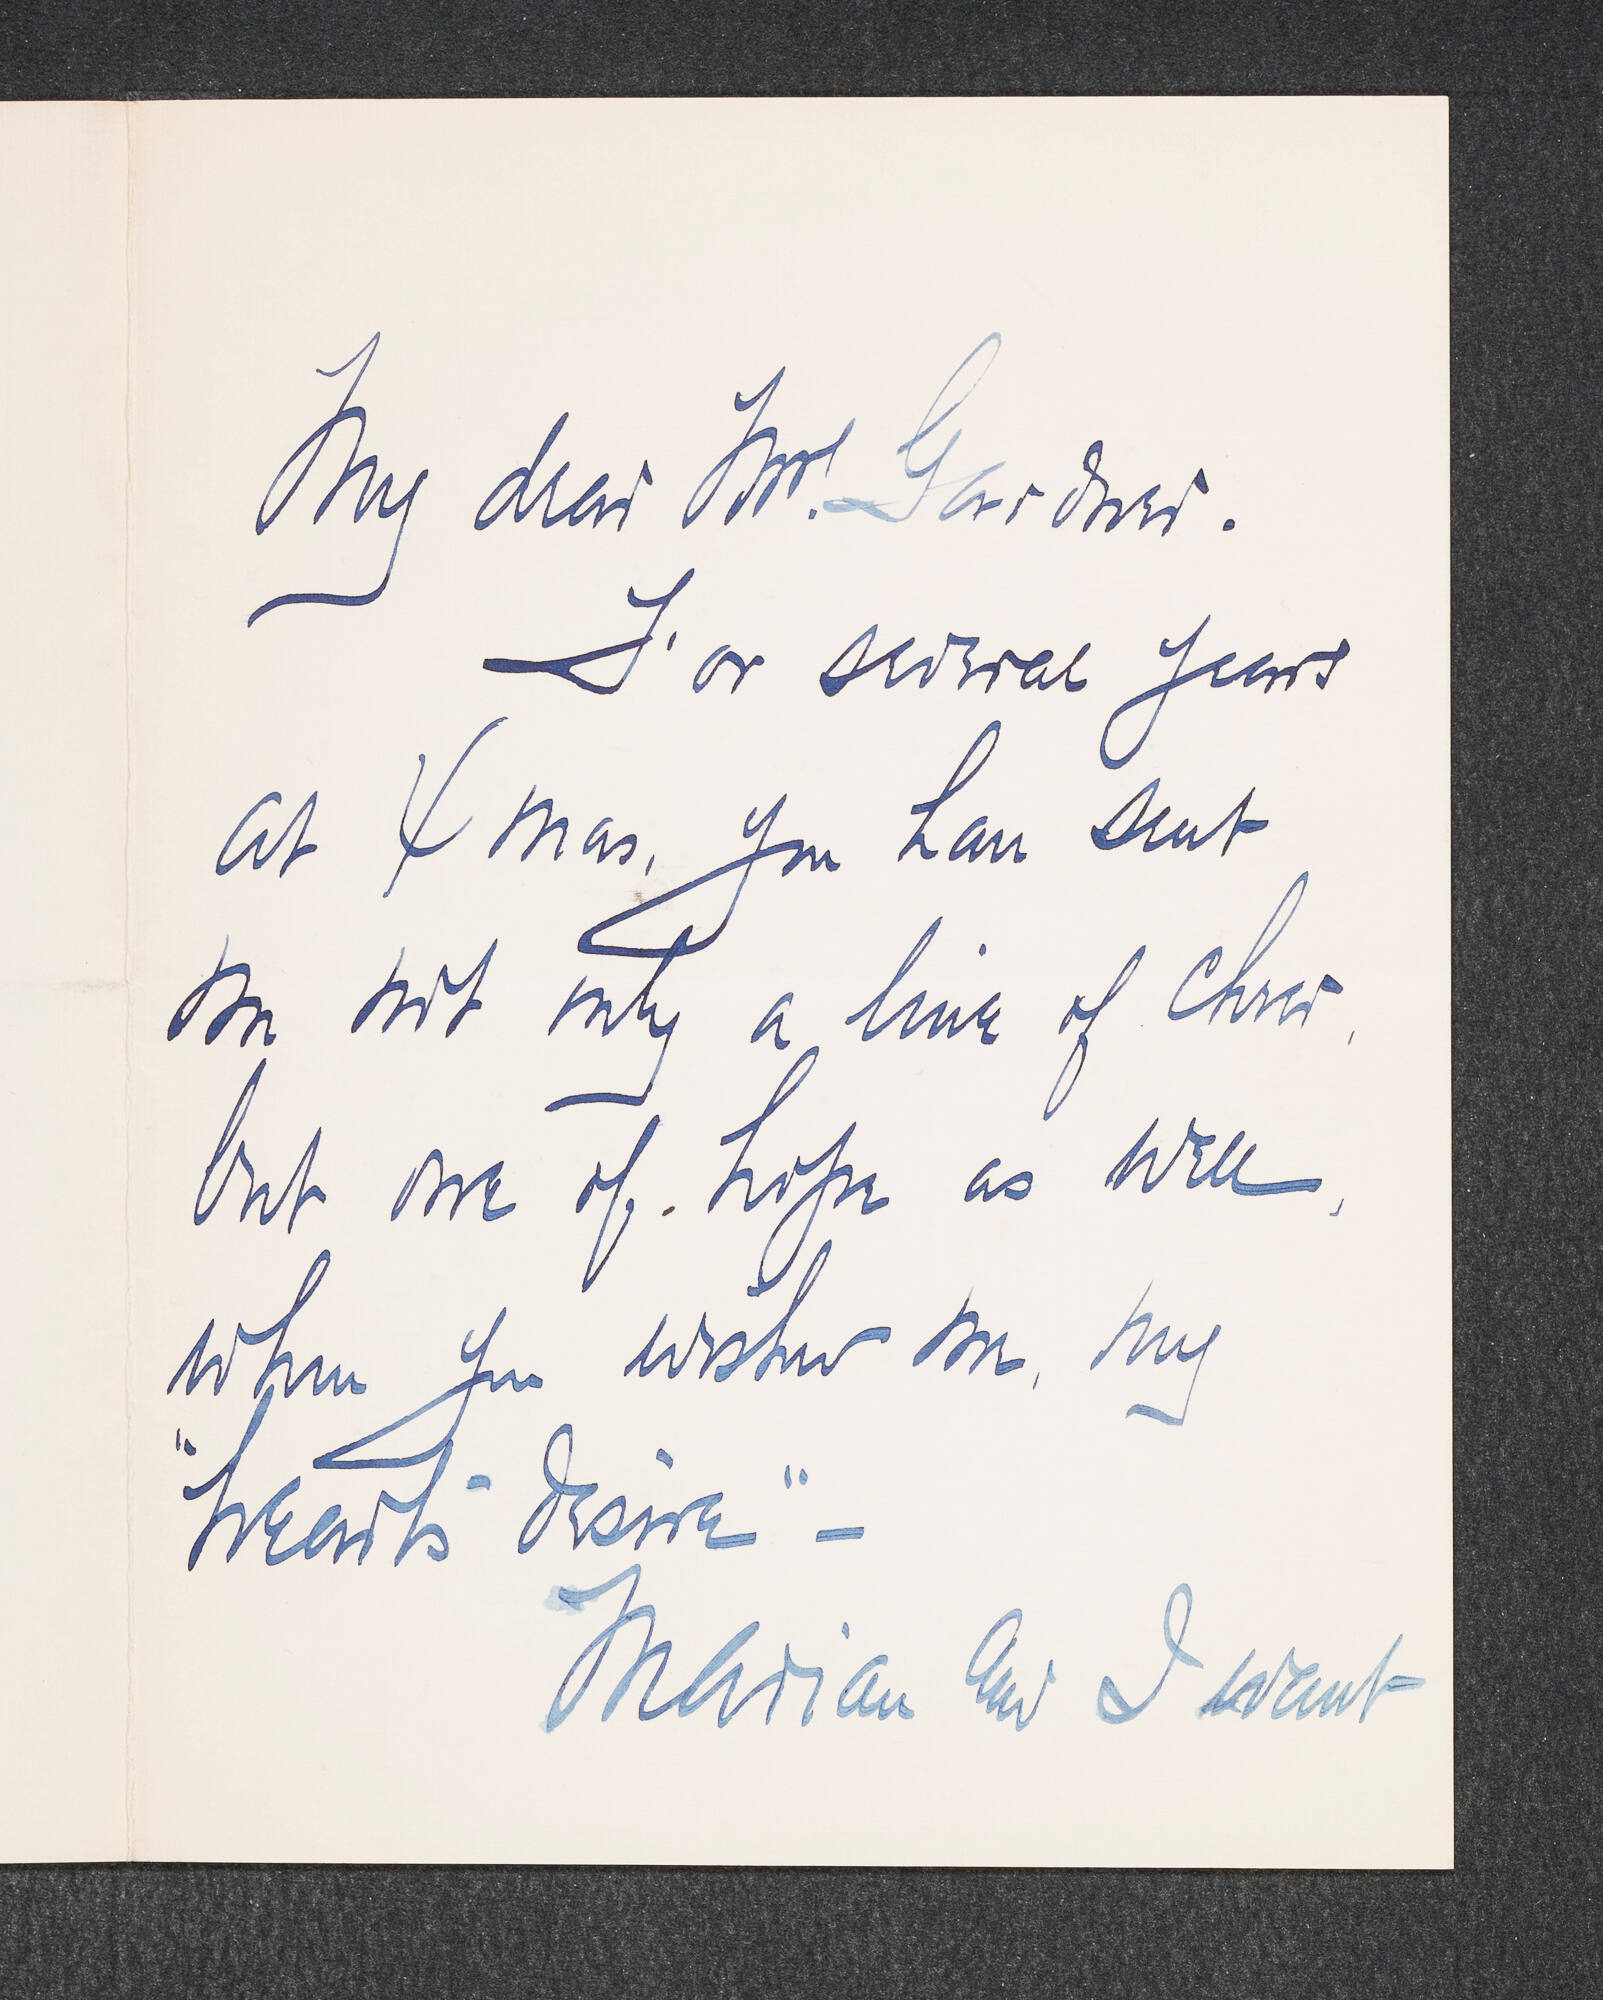 My dear Mrs. Gardner.
For several years
at Xmas, you have sent
me not only a line of cheer,
but one of hope as well,
when you wished me, my
"heart's desire" –
Marian and I want